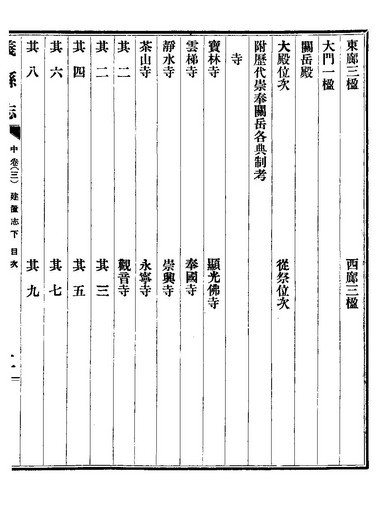 東廊三楹 西廊三楹
大門一楹
關岳殿
大殿位次 從祭位次
附歷代崇奉關岳各典制考
寺
寶林寺 顯光佛寺
雲梯寺 奉國寺
靜水寺 崇興寺
茶山寺 永寧寺
其二 觀音寺
其二 其三
其四 其五
其六 其七
其八 其九
縣志 中卷(三) 建置志下 目次